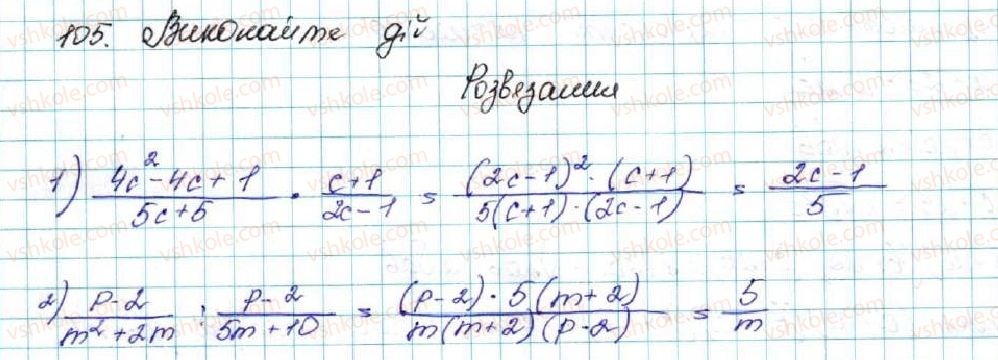 105. Виконайте дії
Розвязання
1) (4c² - 4c + 1)/(5c + 5) · (c + 1)/(2c - 1) = ((2c - 1)² · (c + 1))/(5(c + 1) · (2c - 1)) = (2c - 1)/5
2) (p - 2)/(m² + 2m) : (p - 2)/(5m + 10) = ((p - 2) · 5(m + 2))/(m(m + 2)(p - 2)) = 5/m